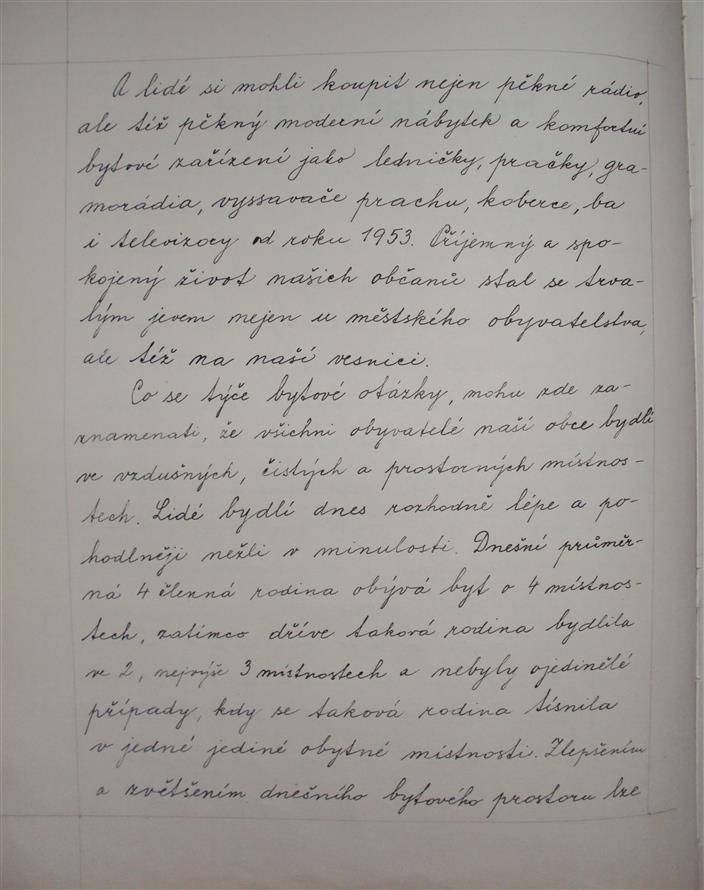 A lidé si mohli koupit nejen pěkné rádio,
ale též pěkný moderní nábytek a komfortní
bytové zařízení jako ledničky, pračky, gra-
morádia, vyssavače prachu, koberce, ba
i televizory od roku 1953. Příjemný a spo-
kojený život našich občanů stal se trva-
lým jevem nejen u městského obyvatelstva,
ale též na naší vesnici.
Co se týče bytové otázky, mohu zde za-
znamenati, že všichni obyvatelé naší obce bydlí
ve vzdušných, čistých a prostorných místnos-
tech. Lidé bydlí dnes rozhodně lépe a po-
hodlněji nežli v minulosti. Dnešní průměr-
ná 4 členná rodina obývá byt o 4 místnos-
tech, zatímco dříve taková rodina bydlila
ve 2, nejvýše 3 místnostech a nebyly ojedinělé
případy, kdy se taková rodina tísnila
v jedné jediné obytné místnosti. Zlepšením
a zvětšením dnešního bytového prostoru lze